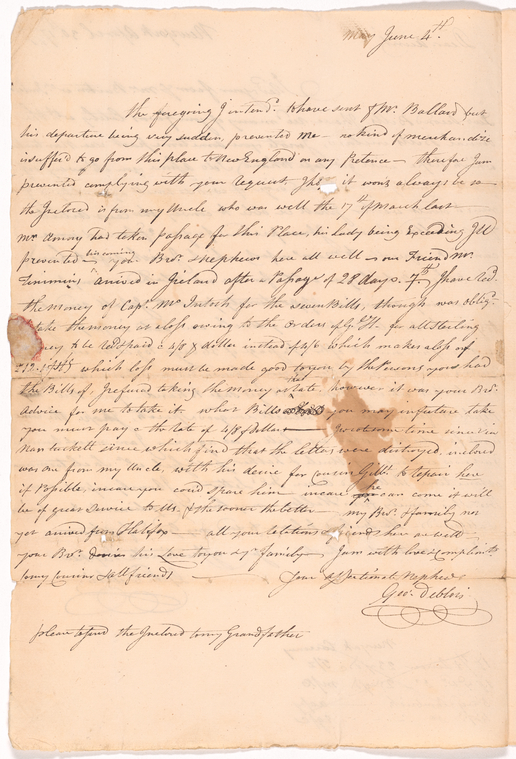 May June 4th
The foregoing I intend.d to have sent ℔ Mr. Ballard but
his departure being very sudden, prevented me — no kind of merchandize
is suffer'd to go from this place to New England on any Pretence — therefore I am
prevented complying with your request, I hope it wont always be so
the Inclosed is from my Uncle who was well the 17th of March last
Mr. Amory had taken passage for this Place, his Lady being Exceeding Ill
prevented his coming. your Bro.r Stephens here all well — our Friend Mr.
Timmins arrived in Ireland after a Passage of 28 days. I have Rec.d
the Money of Cap.t McIntosh for the seven Bills, though was oblig.d
to take the money at a loss owing to the Orders of G. H. for all sterling
money to be Rec.d & paid a 4/8 ℔ dollar instead of 4/6 which makes a loss of
£12.17.4½ which loss must be made good to you by the Persons you had
the Bills of, I refused taking the Money at that Rate, however it was your Bro.r
Advice for me to take it. what Bills you may in future take
you must pay a the rate of 4/8 ℔ dollar — I wrote some time since via
Nantuckett since which find that the letters were distroyed, inclosed
was one from my Uncle, with his desire for Cousin Gilb.t to repair here
if Possible, in case you could spare him in case he can come it will
be of great Service to Us, & the sooner the better — my Bro.r & family not
yet arrived from Halifax — all your Relations & friends here are well
your Bro.r desires his Love to you & y.r family — I am with love & complim.ts
to my Cousins & all friends — Your affectionate Nephew
Geo: Deblois
please to send the Inclosed to my Grandfather